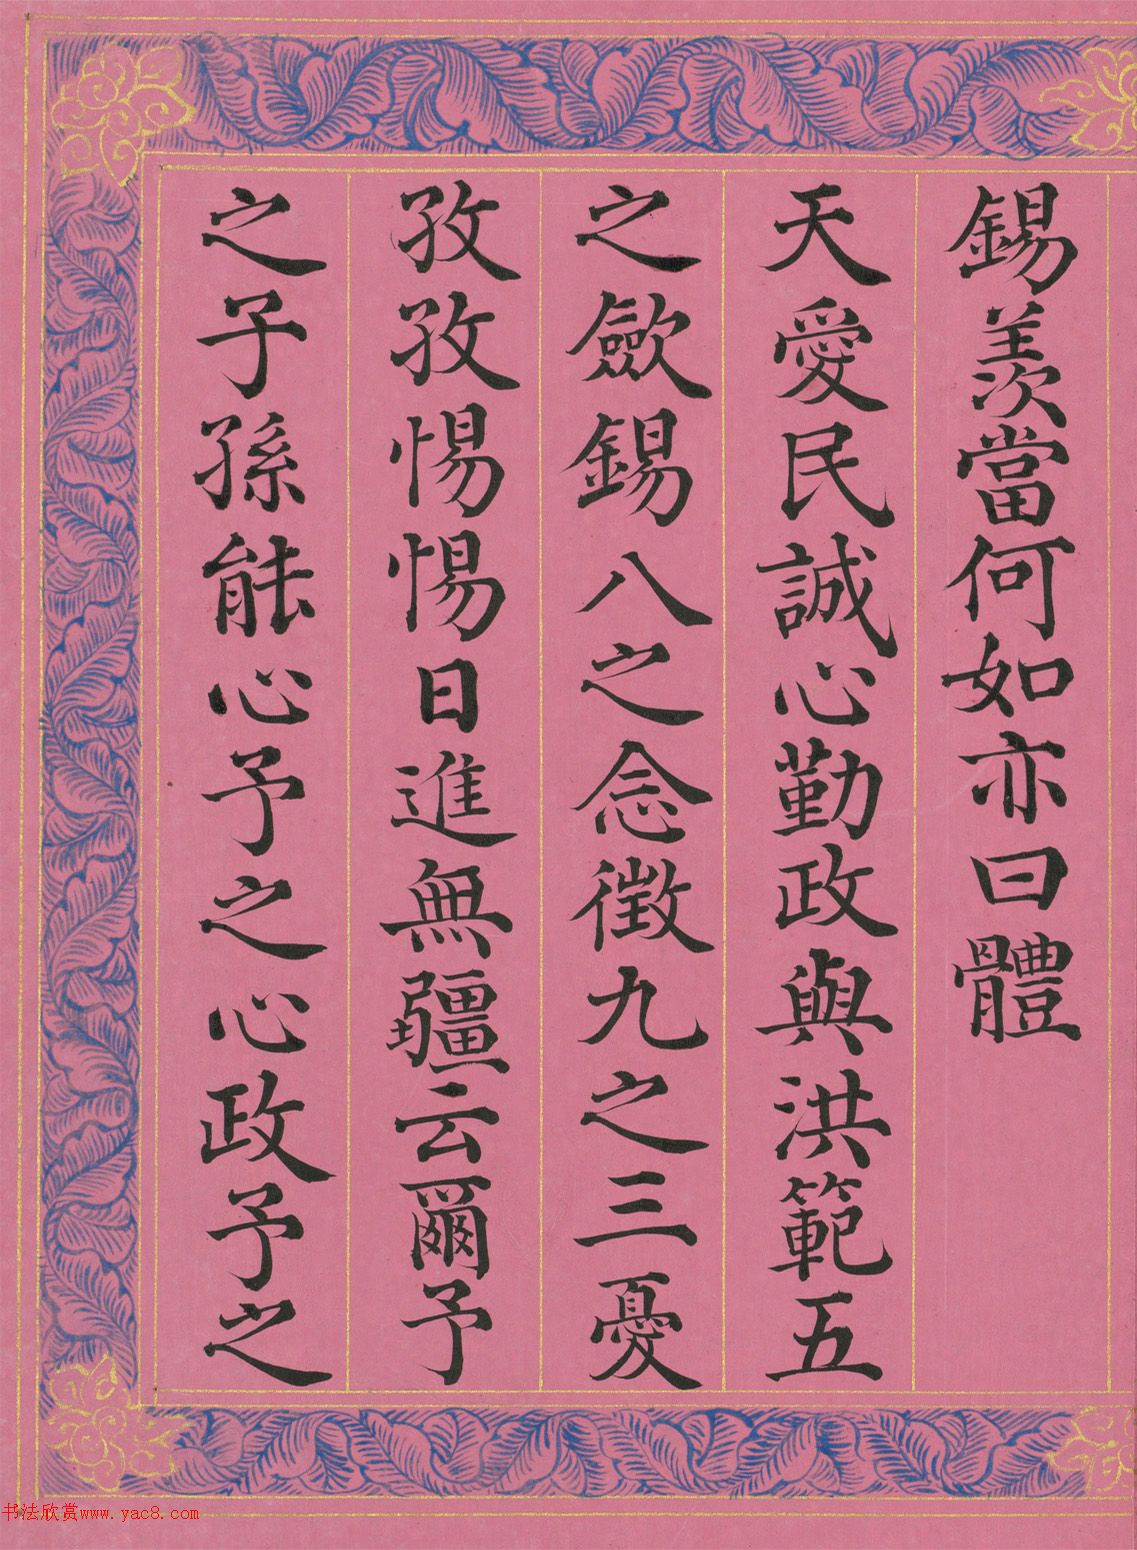 錫羨當何如亦曰體
天愛民誠心勤政與洪範五
之歛錫八之念徵九之三憂
孜孜惕惕日進無疆云爾予
之子孫能心予之心政予之
书法欣赏www.yac8.com